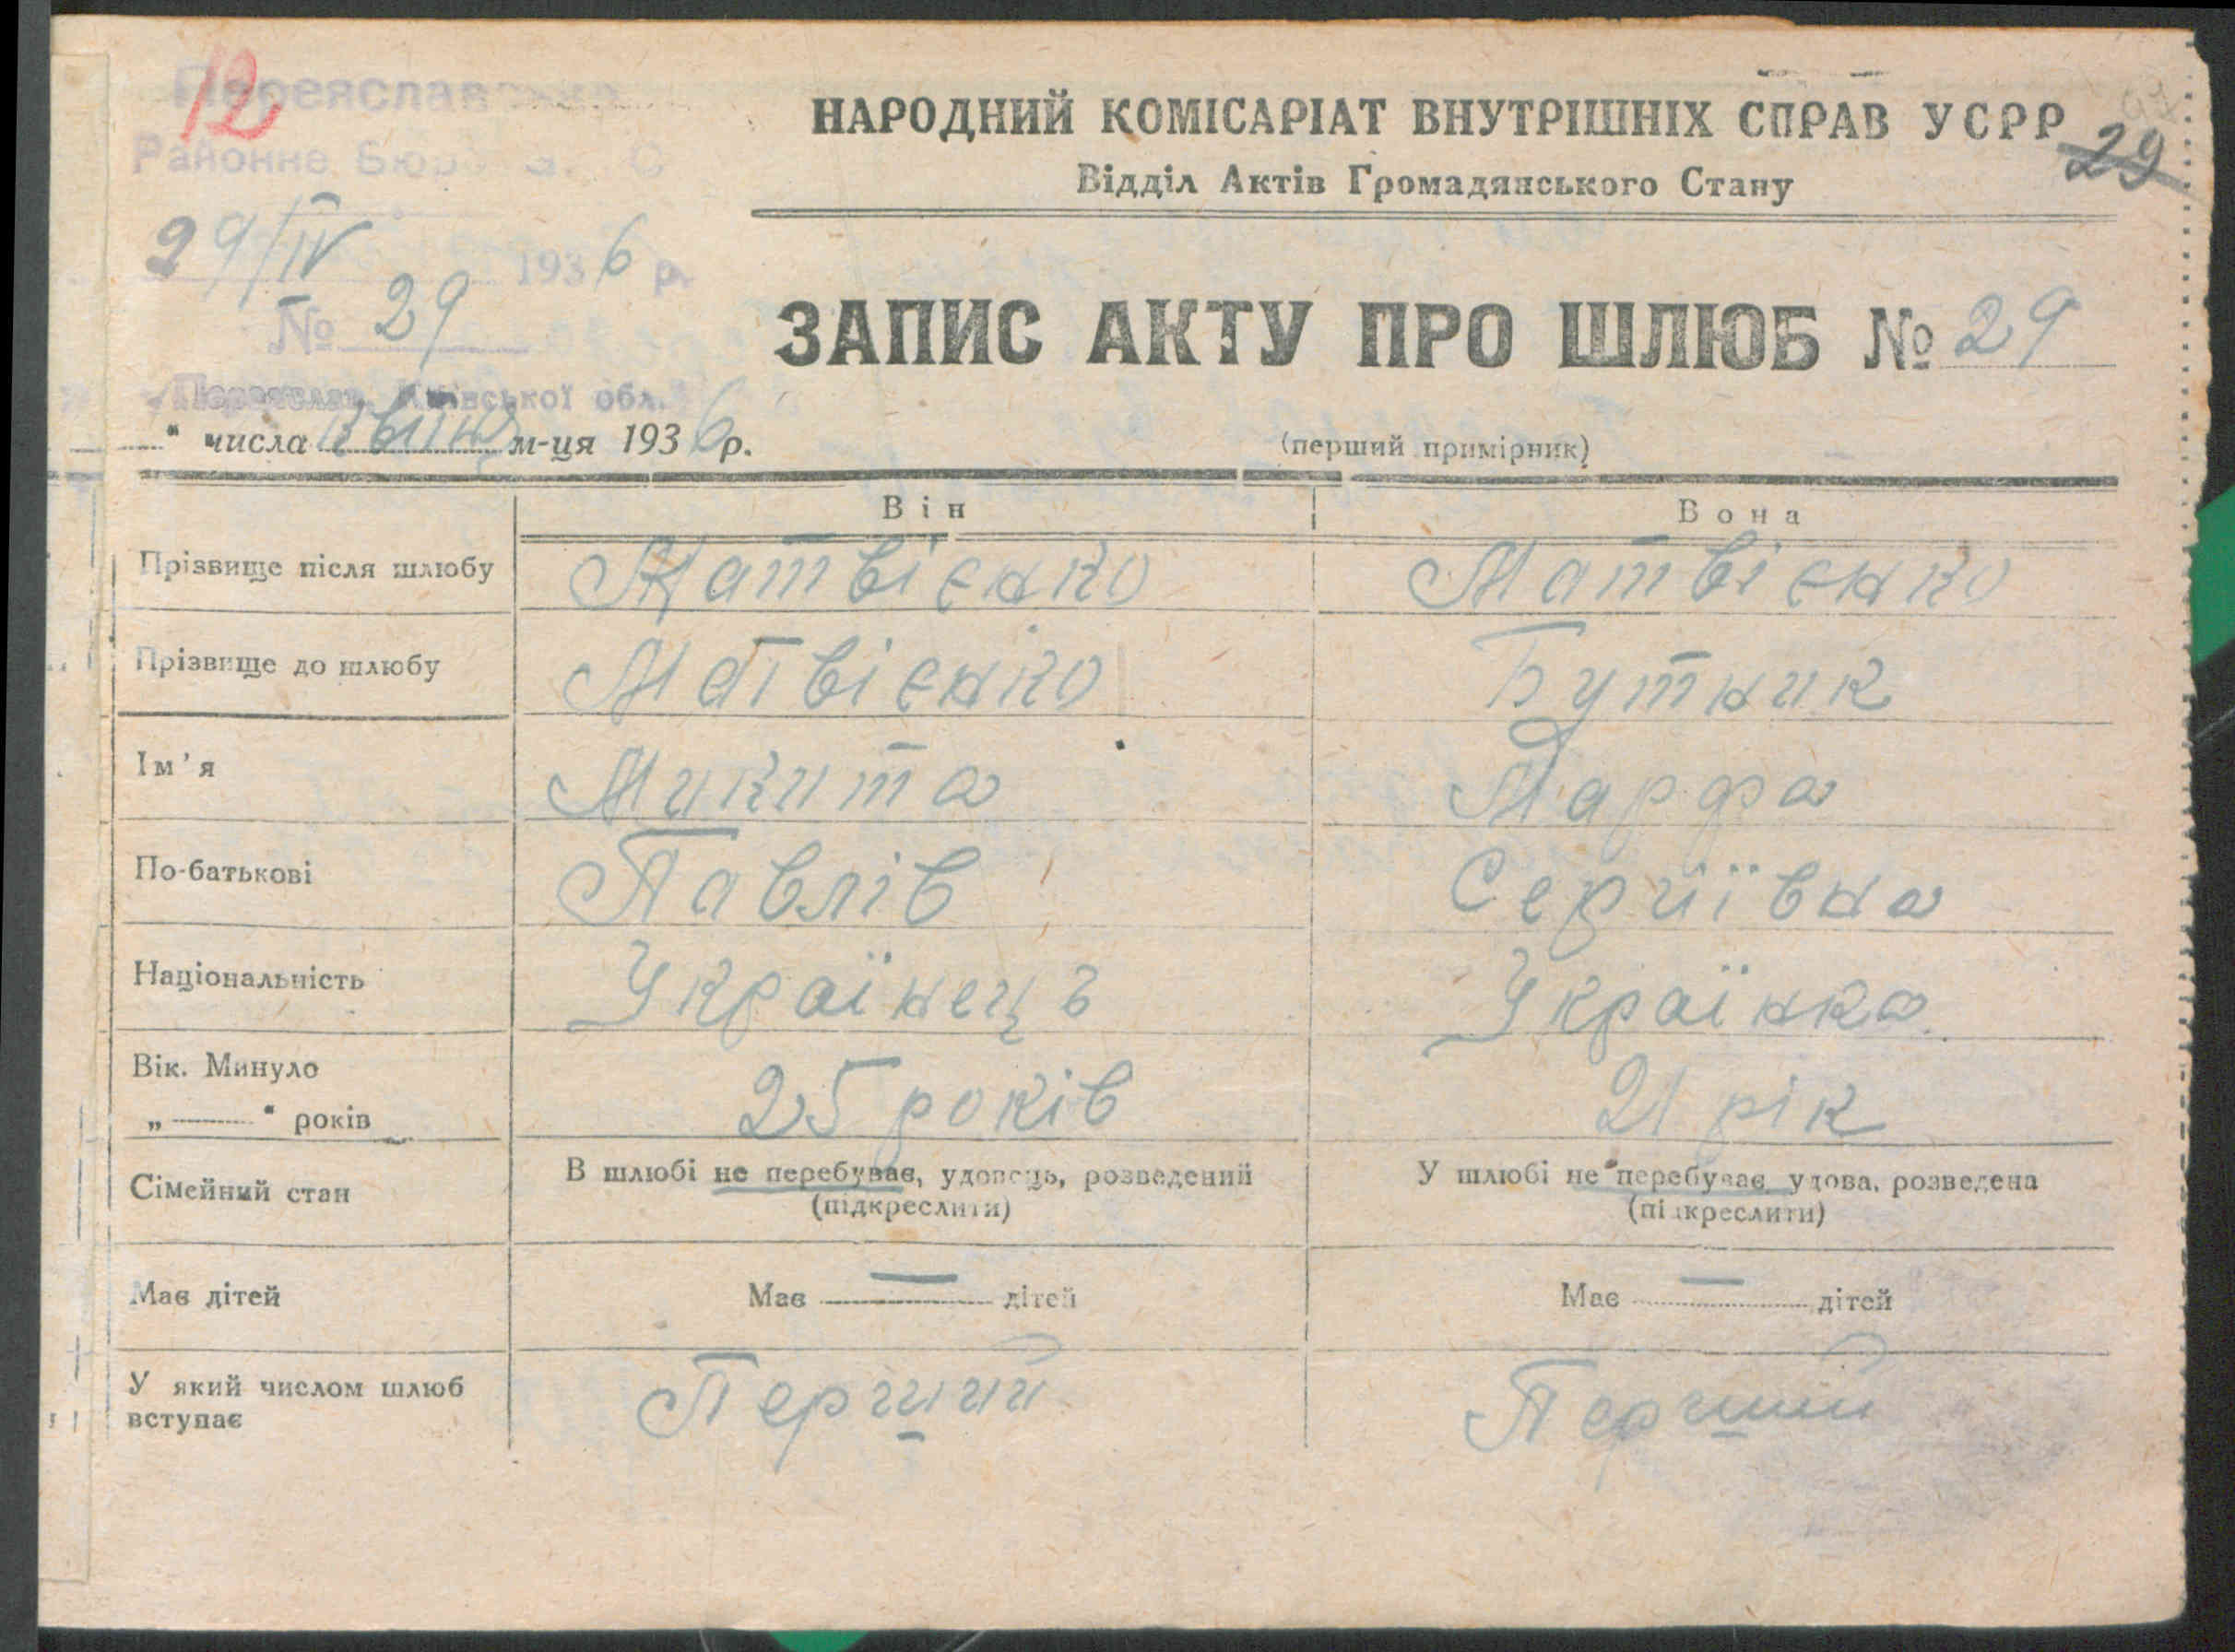 12
Переяславське
Районне Бюро З. С
29/IV 1936 р.
№ 29
Переяслав, Київської обл.
НАРОДНИЙ КОМІСАРІАТ ВНУТРІШНІХ СПРАВ УСРР
29
Відділ Актів Громадянського Стану
ЗАПИС АКТУ ПРО ШЛЮБ № 29
" числа квітня м-ця 1936 р.
(перший примірник)
Він Вона
Прізвище після шлюбу Матвієнко Матвієнко
Прізвище до шлюбу Матвієнко Бутник
Ім'я Микита Марфа
По-батькові Павлів Сергіївна
Національність Українець Українка
Вік. Минуло
„ — " років 25 років 21 рік
Сімейний стан В шлюбі не перебуває, удовець, розведений У шлюбі не перебуває удова, розведена
(підкреслити) (підкреслити)
Має дітей Має — дітей Має — дітей
У який числом шлюб
вступає Перший Перший